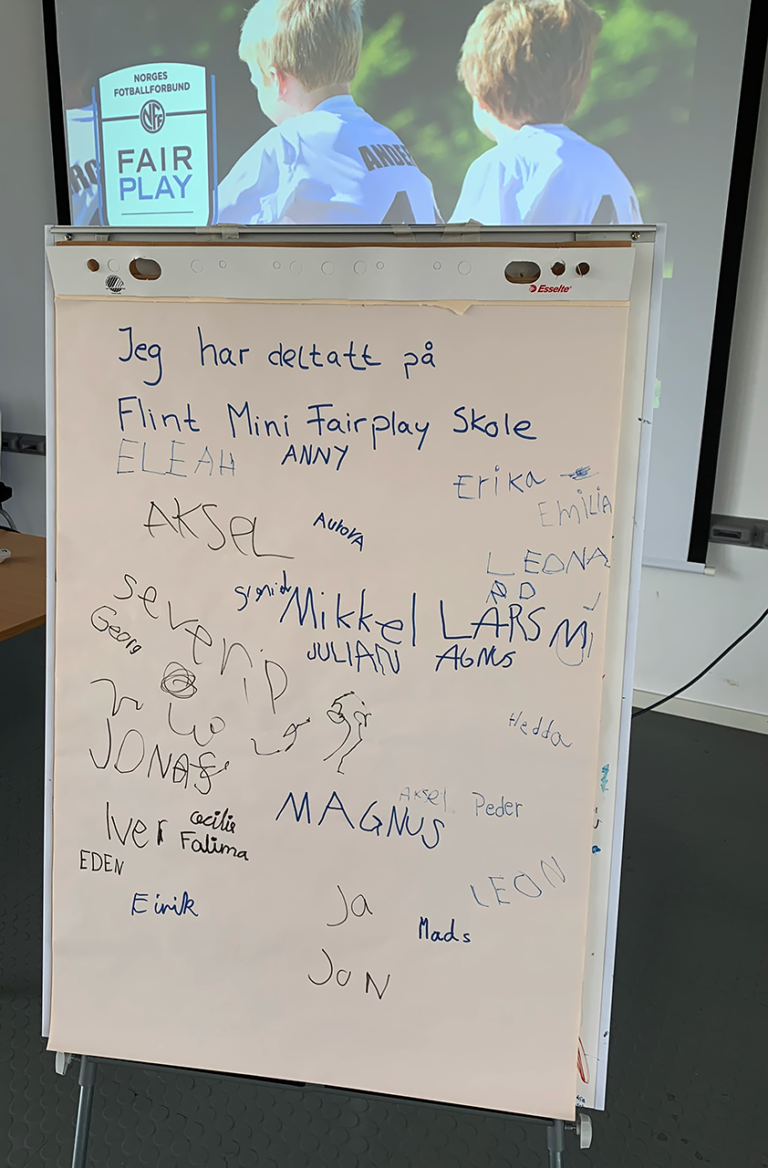 NORGES
FOTBALLFORBUND
NFF
FAIR
PLAY
ANDER
Esselte
Jeg har deltatt på
Flint Mini Fairplay Skole
ELEAH ANNY
Erika
EMILIA
AKSEL AuroRA
LEONA
RD
severin Sigrid Mikkel LARS
Georg JULIAN AGNUS
Hedda
JONAS
Aksel Peder
MAGNUS
Iver cecilie
Fatima
EDEN
LEON
Eirik Ja
Mads
JoN